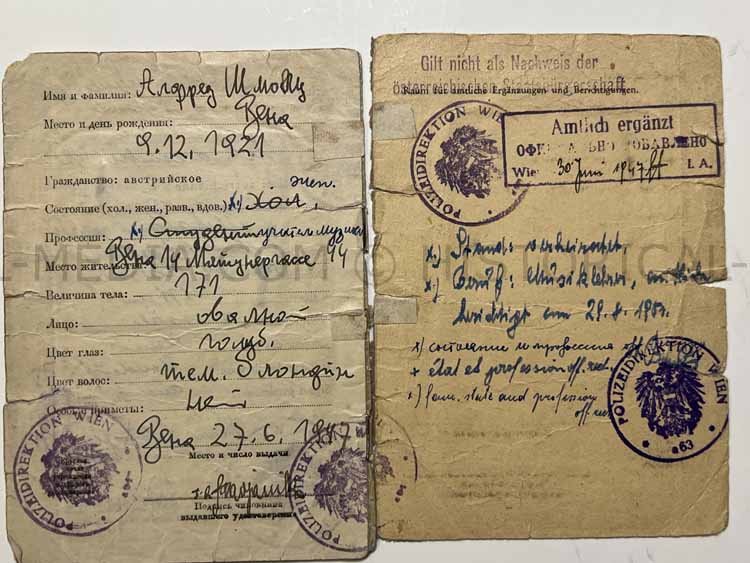 Имя и фамилия: Алфред Шмо
Вена
Место и день рождения:
9.12.1921
Гражданство: австрийское
жен.
Состояние (хол., жен., разв., вдов.) x) Хол.
Профессия: x) Студент учитель музыки
Место жительства: Вена 14 44
Величина тела: 171
Лицо: овальное
Цвет глаз: голуб.
Цвет волос: тем. блондин
Особые приметы: нет
Вена 27.6.1947
Место и число выдачи
Подпись чиновника
выдавшего удостоверение
POLIZEIDIREKTION WIEN
POLIZEIDIREKTION WIEN
Gilt nicht als Nachweis der
österreichischen Staatsbürgerschaft
Raum für amtliche Ergänzungen und Berichtigungen.
POLIZEIDIREKTION WIEN
Amtlich ergänzt
ОФИЦИАЛЬНО ДОБАВЛЕНО
Wien 30. Juni 1947 I. A.
x) Stand: verheiratet
x) Beruf: Musiklehrer,
berichtigt am 28.
x) состояние и профессия
+ état et profession off. rect.
x) fam. state and profession
off. rect.
POLIZEIDIREKTION WIEN
63